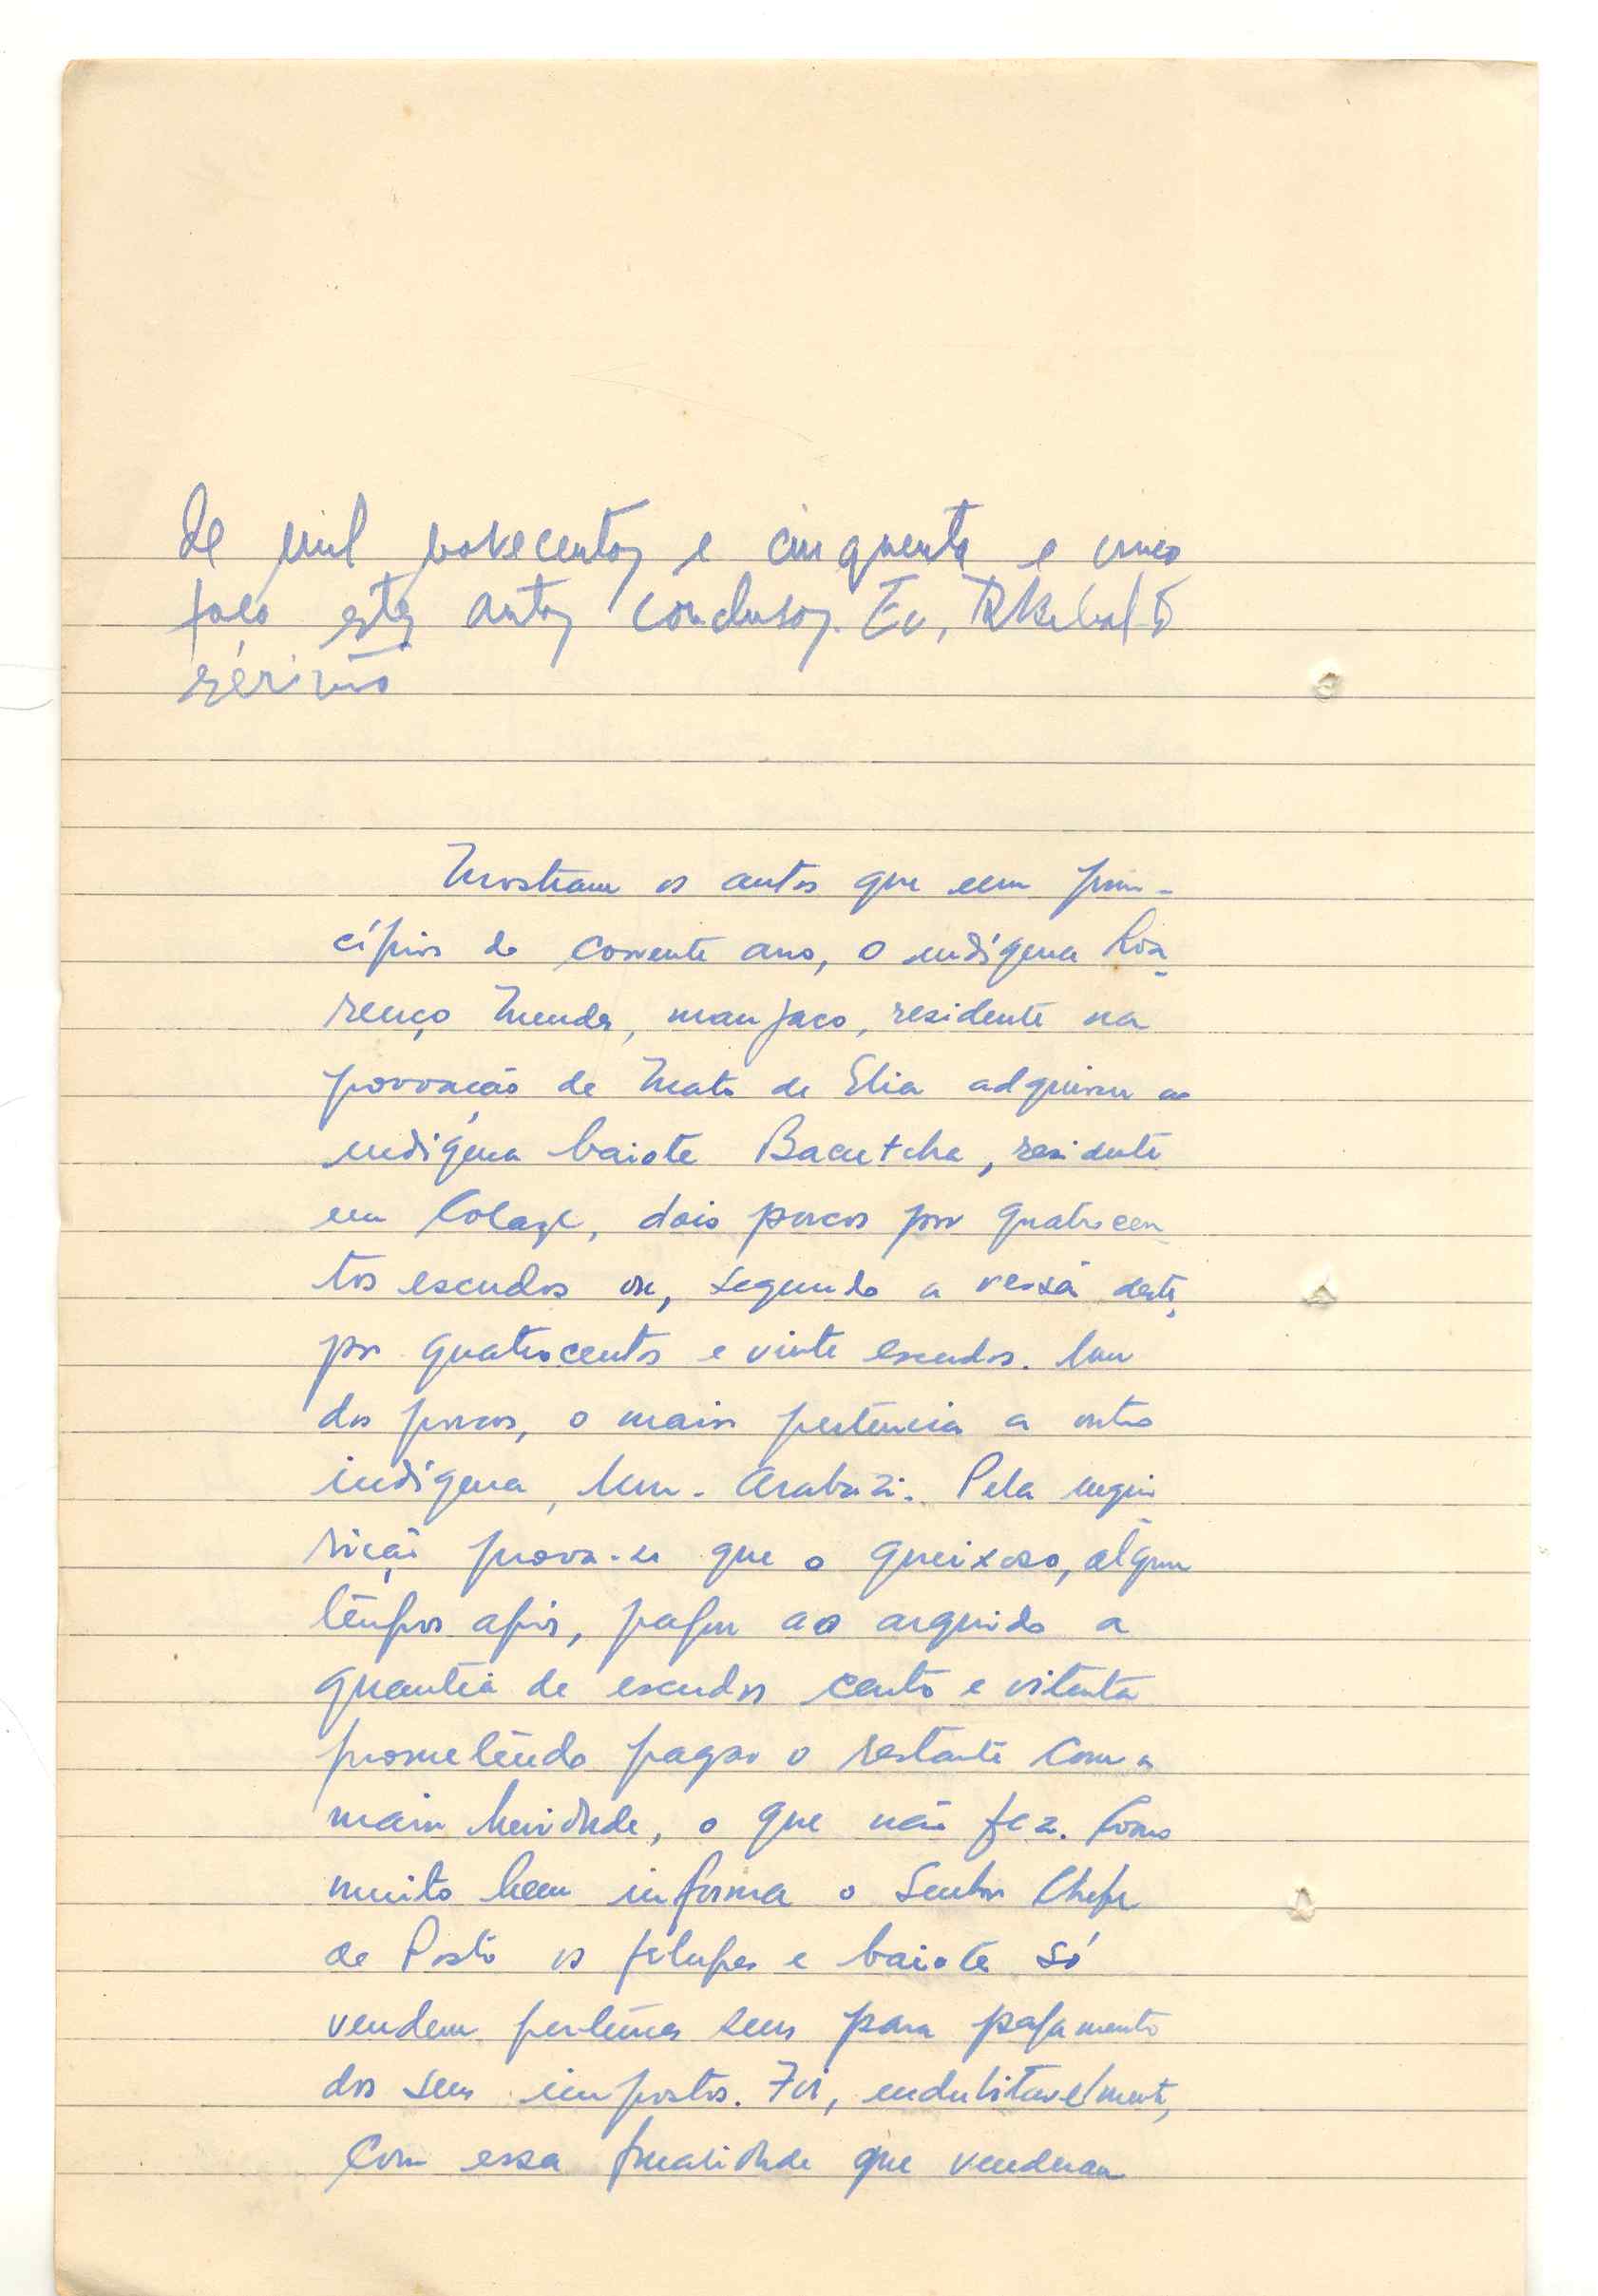 de mil novecentos e cinquenta e cinco
faço estes autos conclusos. Eu,
escrivão
Mostram os autos que em prin-
cípios do corrente ano, o indígena Lou-
renço Mendes, manjaco, residente na
povoação de Mato de Elia adquiriu ao
indígena baiote Bacutcha, residente
em Colage, dois porcos por quatrocen
tos escudos ou, segundo a versão deste,
por quatrocentos e vinte escudos. Um
dos porcos, o maior pertencia a outro
indígena, Um. Arabuzi. Pela inqui
rição prova-se que o queixoso, algum
tempos após, pagou ao arguido a
quantia de escudos cento e oitenta
prometendo pagar o restante com a
maior brevidade, o que não fez. Como
muito bem informa o Senhor Chefe
de Posto os felupes e baiotes só
vendem pertences seus para pagamento
dos seus impostos. Foi, indubitavelmente,
com essa finalidade que venderam